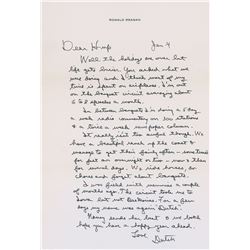 RONALD REAGAN
Jan 4
Dear Hup
Well the holidays are over but
life gets busier. You asked what we
were doing and I think most of my
time is spent on airplanes. I'm out
on the banquet circuit averaging about
6 to 8 speeches a month.
In between banquets I'm doing a 5 day
a week radio commentary on 300 stations
& a twice a week newspaper column.
It really isn't too awful though. We
have a beautiful ranch up the coast &
manage to get there fairly often – sometimes
for just an overnight or two – now & then
for several days. We ride horses, do
chores and forget about banquets.
I was filled with memories a couple of
months ago. The circuit took me to
Iowa but not Des Moines. For a few
days my name was again "Dutch".
Nancy sends her best & we both
hope you have a happy year ahead.
Love
Dutch